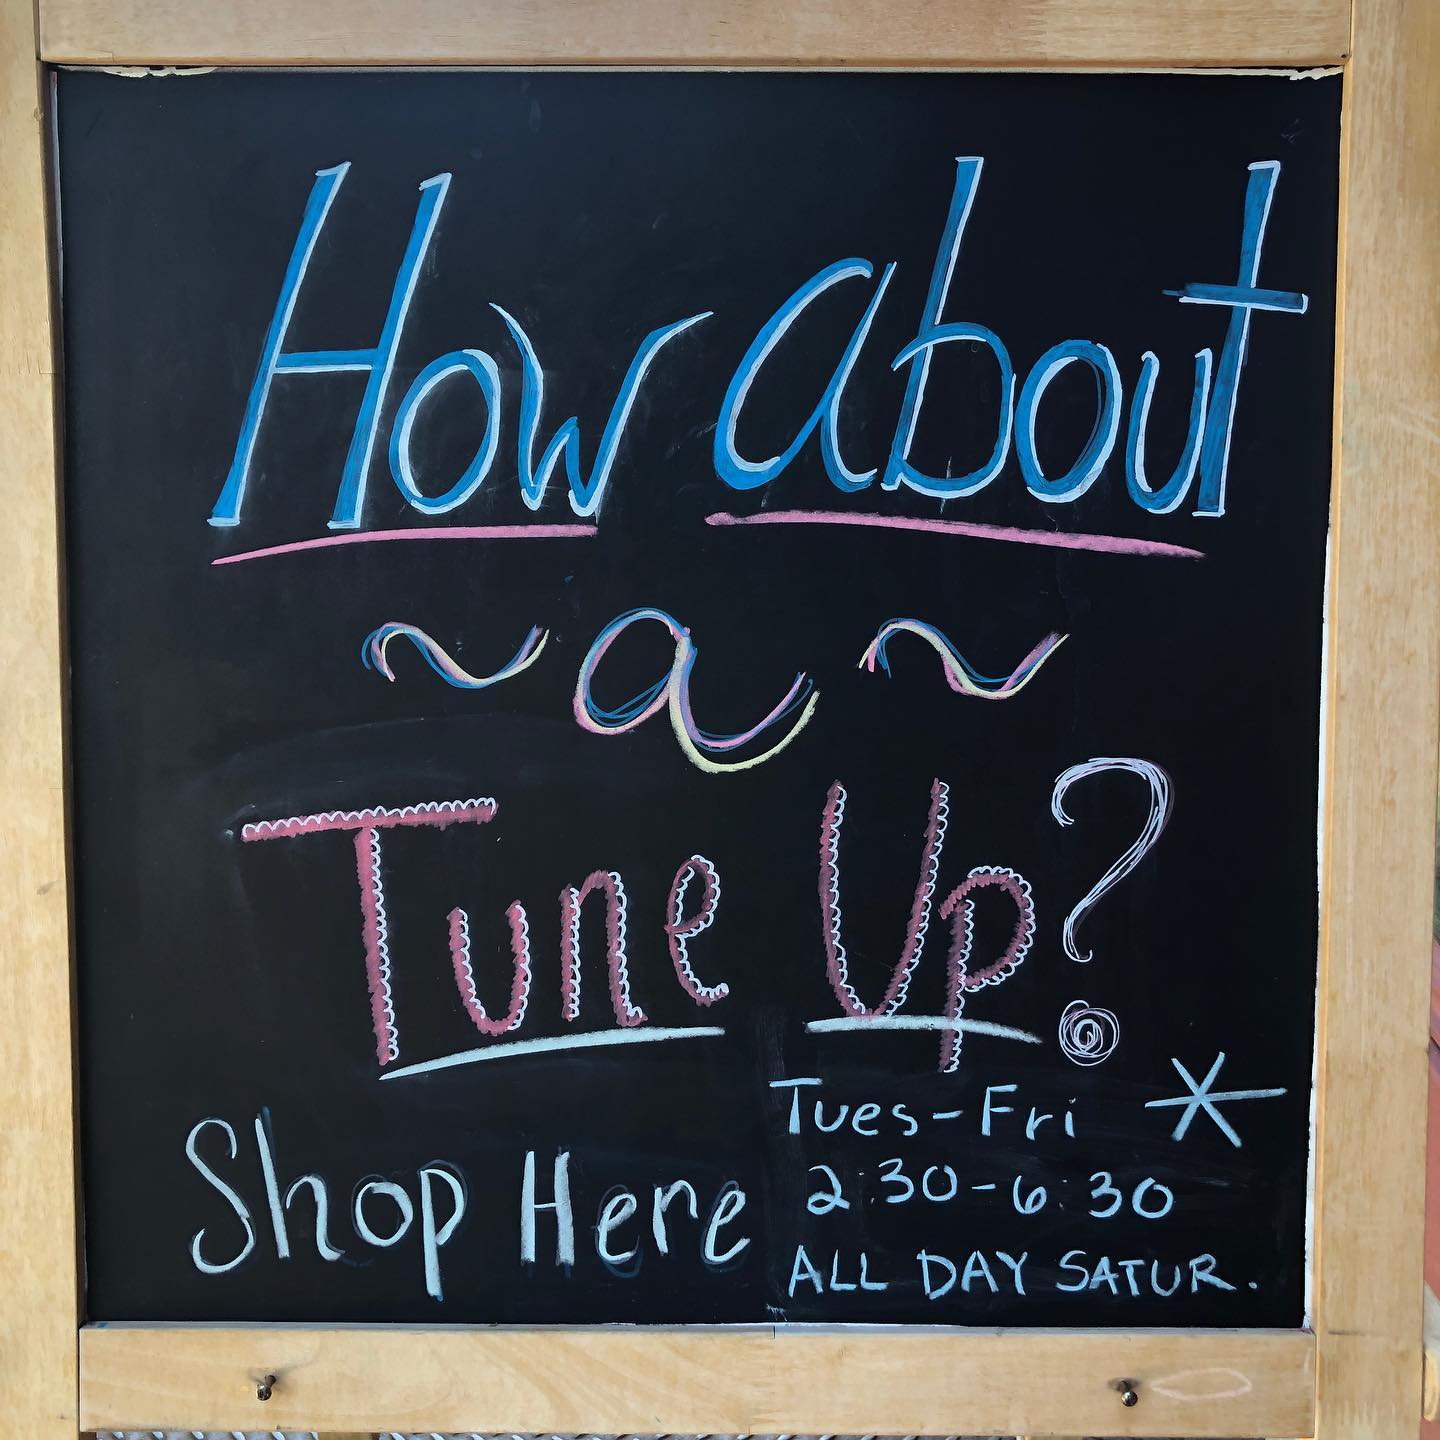 How about
~ a ~
Tune Up?
Shop Here
Tues-Fri *
2:30-6:30
ALL DAY SATUR.